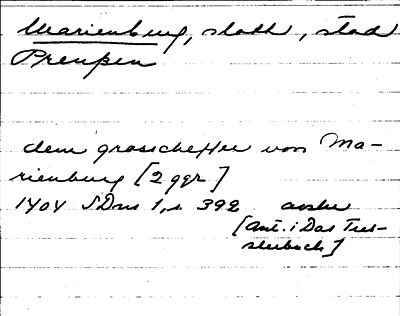 Marienburg, slott, stad
Preußen
dem grosscheffer von Ma-
rienburg [2 ggr]
1404 SDns 1, s. 392 avskr
[Ant. i Das Tres-
slerbuch]